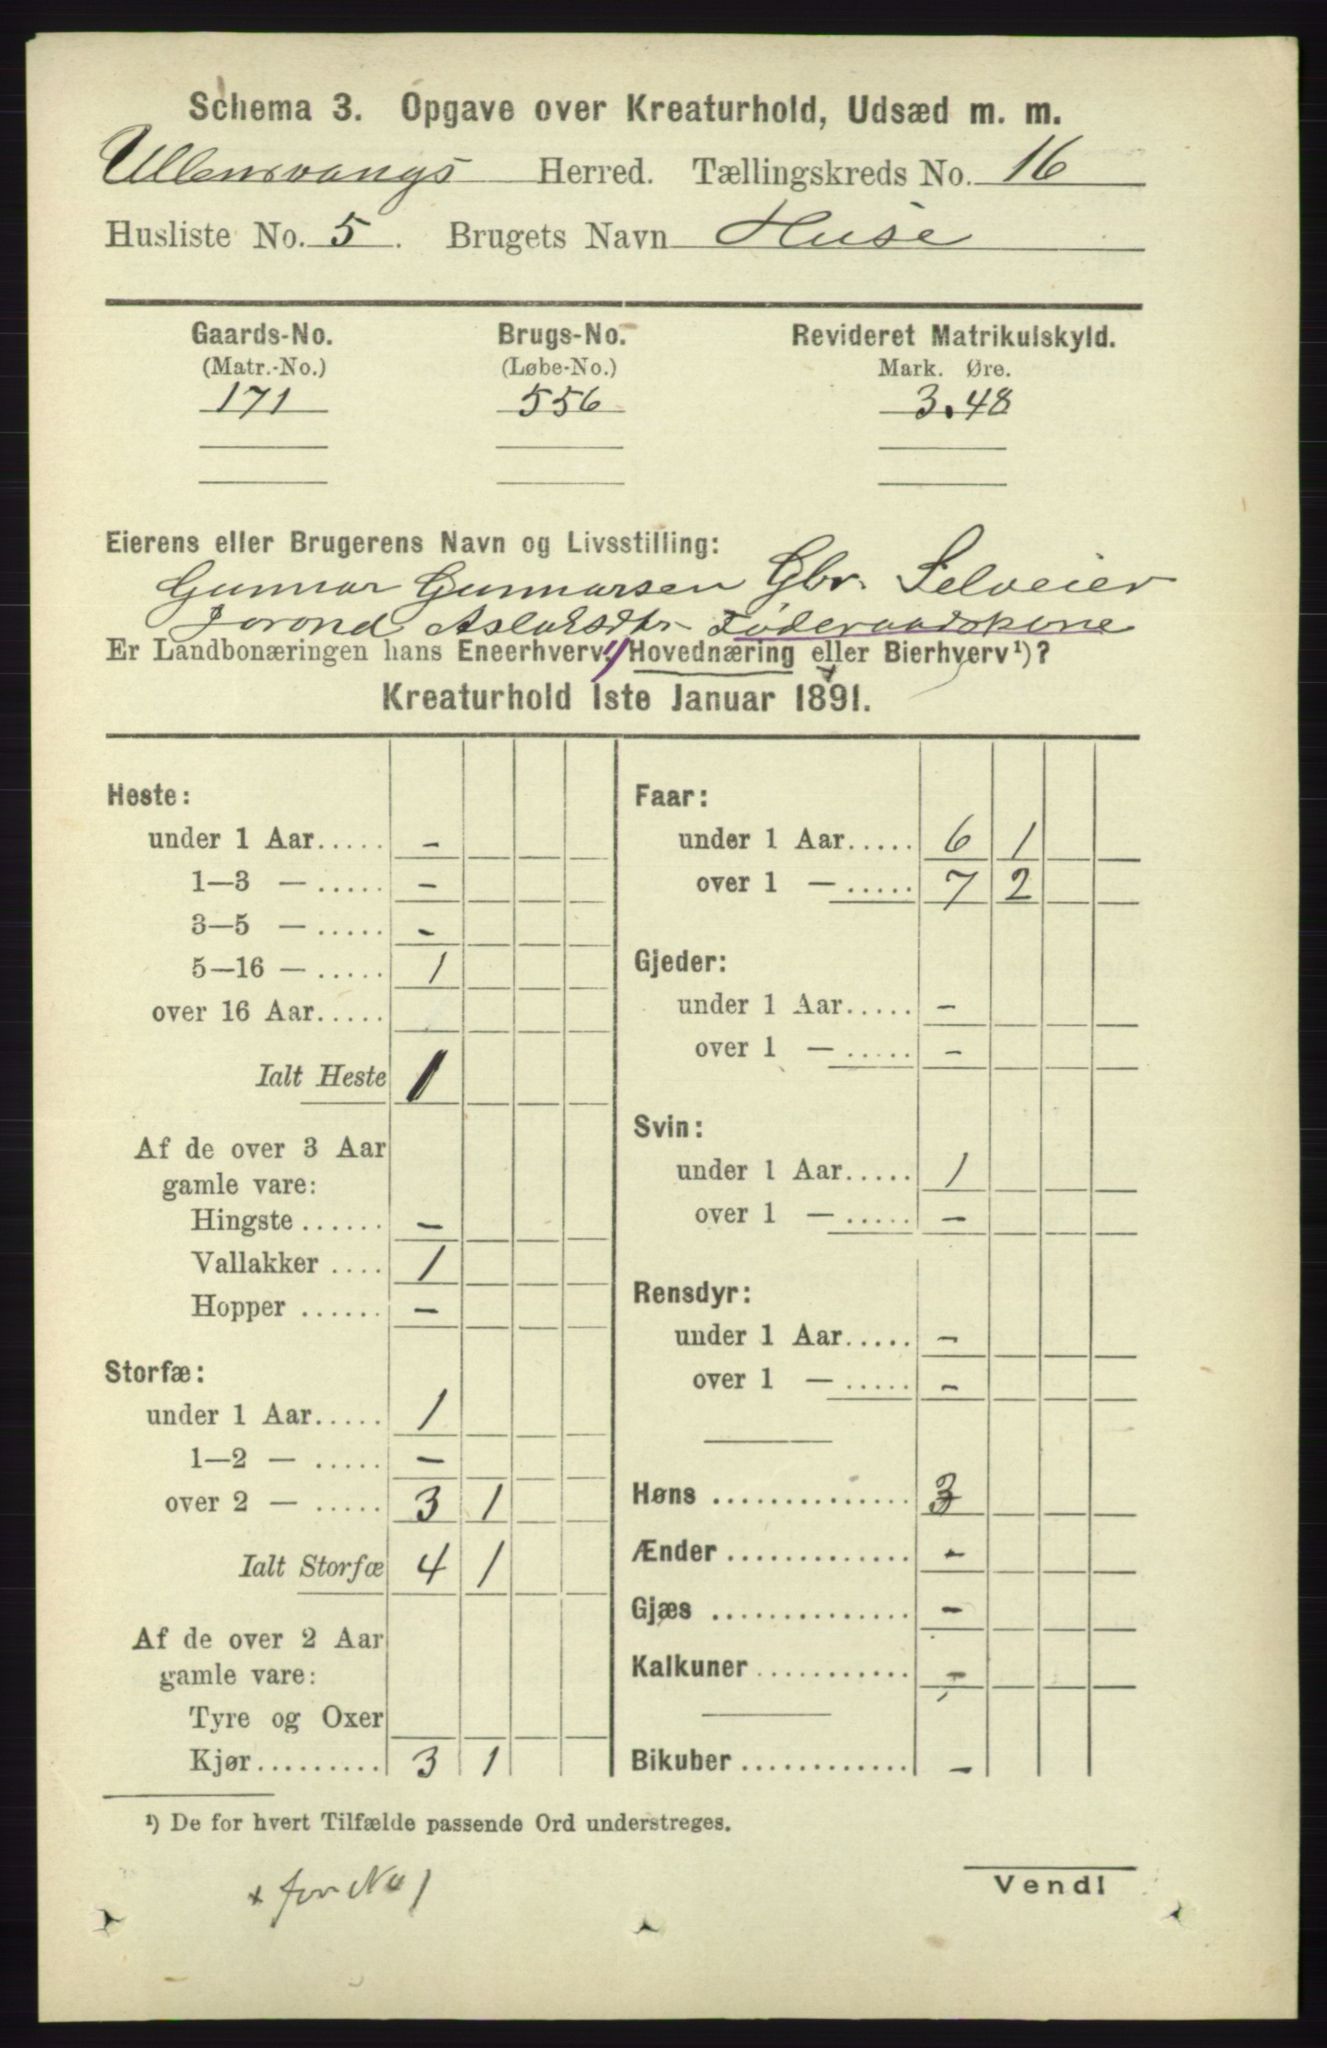 Schema 3. Opgave over Kreaturhold, Udsæd m. m.
Ullensvangs Herred. Tællingskreds No. 16
Husliste No. 5. Brugets Navn Huse
Gaards-No. Brugs-No. Revideret Matrikulskyld.
(Matr.-No.) (Løbe-No.) Mark. Øre.
171 556 3.48
Eierens eller Brugerens Navn og Livsstilling:
Gunnar Gunnarsen Gbr. Selveier
Jorond Aslaksdtr Föderaadskone
Er Landbonæringen hans Eneerhverv, Hovednæring eller Bierhverv¹)?
Kreaturhold 1ste Januar 1891.
Heste:
under 1 Aar..... -
1—3 — ..... -
3—5 — ..... -
5—16 — ..... 1
over 16 Aar.....
Ialt Heste 1
Af de over 3 Aar
gamle vare:
Hingste ...... -
Vallakker .... 1
Hopper ...... -
Storfæ:
under 1 Aar..... 1
1—2 — ..... -
over 2 — ..... 3 1
Ialt Storfæ 4 1
Af de over 2 Aar
gamle vare:
Tyre og Oxer
Kjør......... 3 1
Faar:
under 1 Aar..... 6 1
over 1 — ..... 7 2
Gjeder:
under 1 Aar..... -
over 1 — ..... -
Svin:
under 1 Aar..... 1
over 1 — ..... -
Rensdyr:
under 1 Aar..... -
over 1 — ..... -
Høns .............. 3
Ænder ............. -
Gjæs .............. -
Kalkuner ........... -
Bikuber ............ -
¹) De for hvert Tilfælde passende Ord understreges.
+ for No 1
Vend!